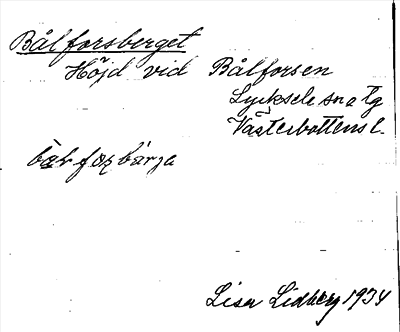 Bålforsberget
Höjd vid Bålforsen
Lycksele sn o Tg
Västerbottens l.
Lisa Lidberg 1934